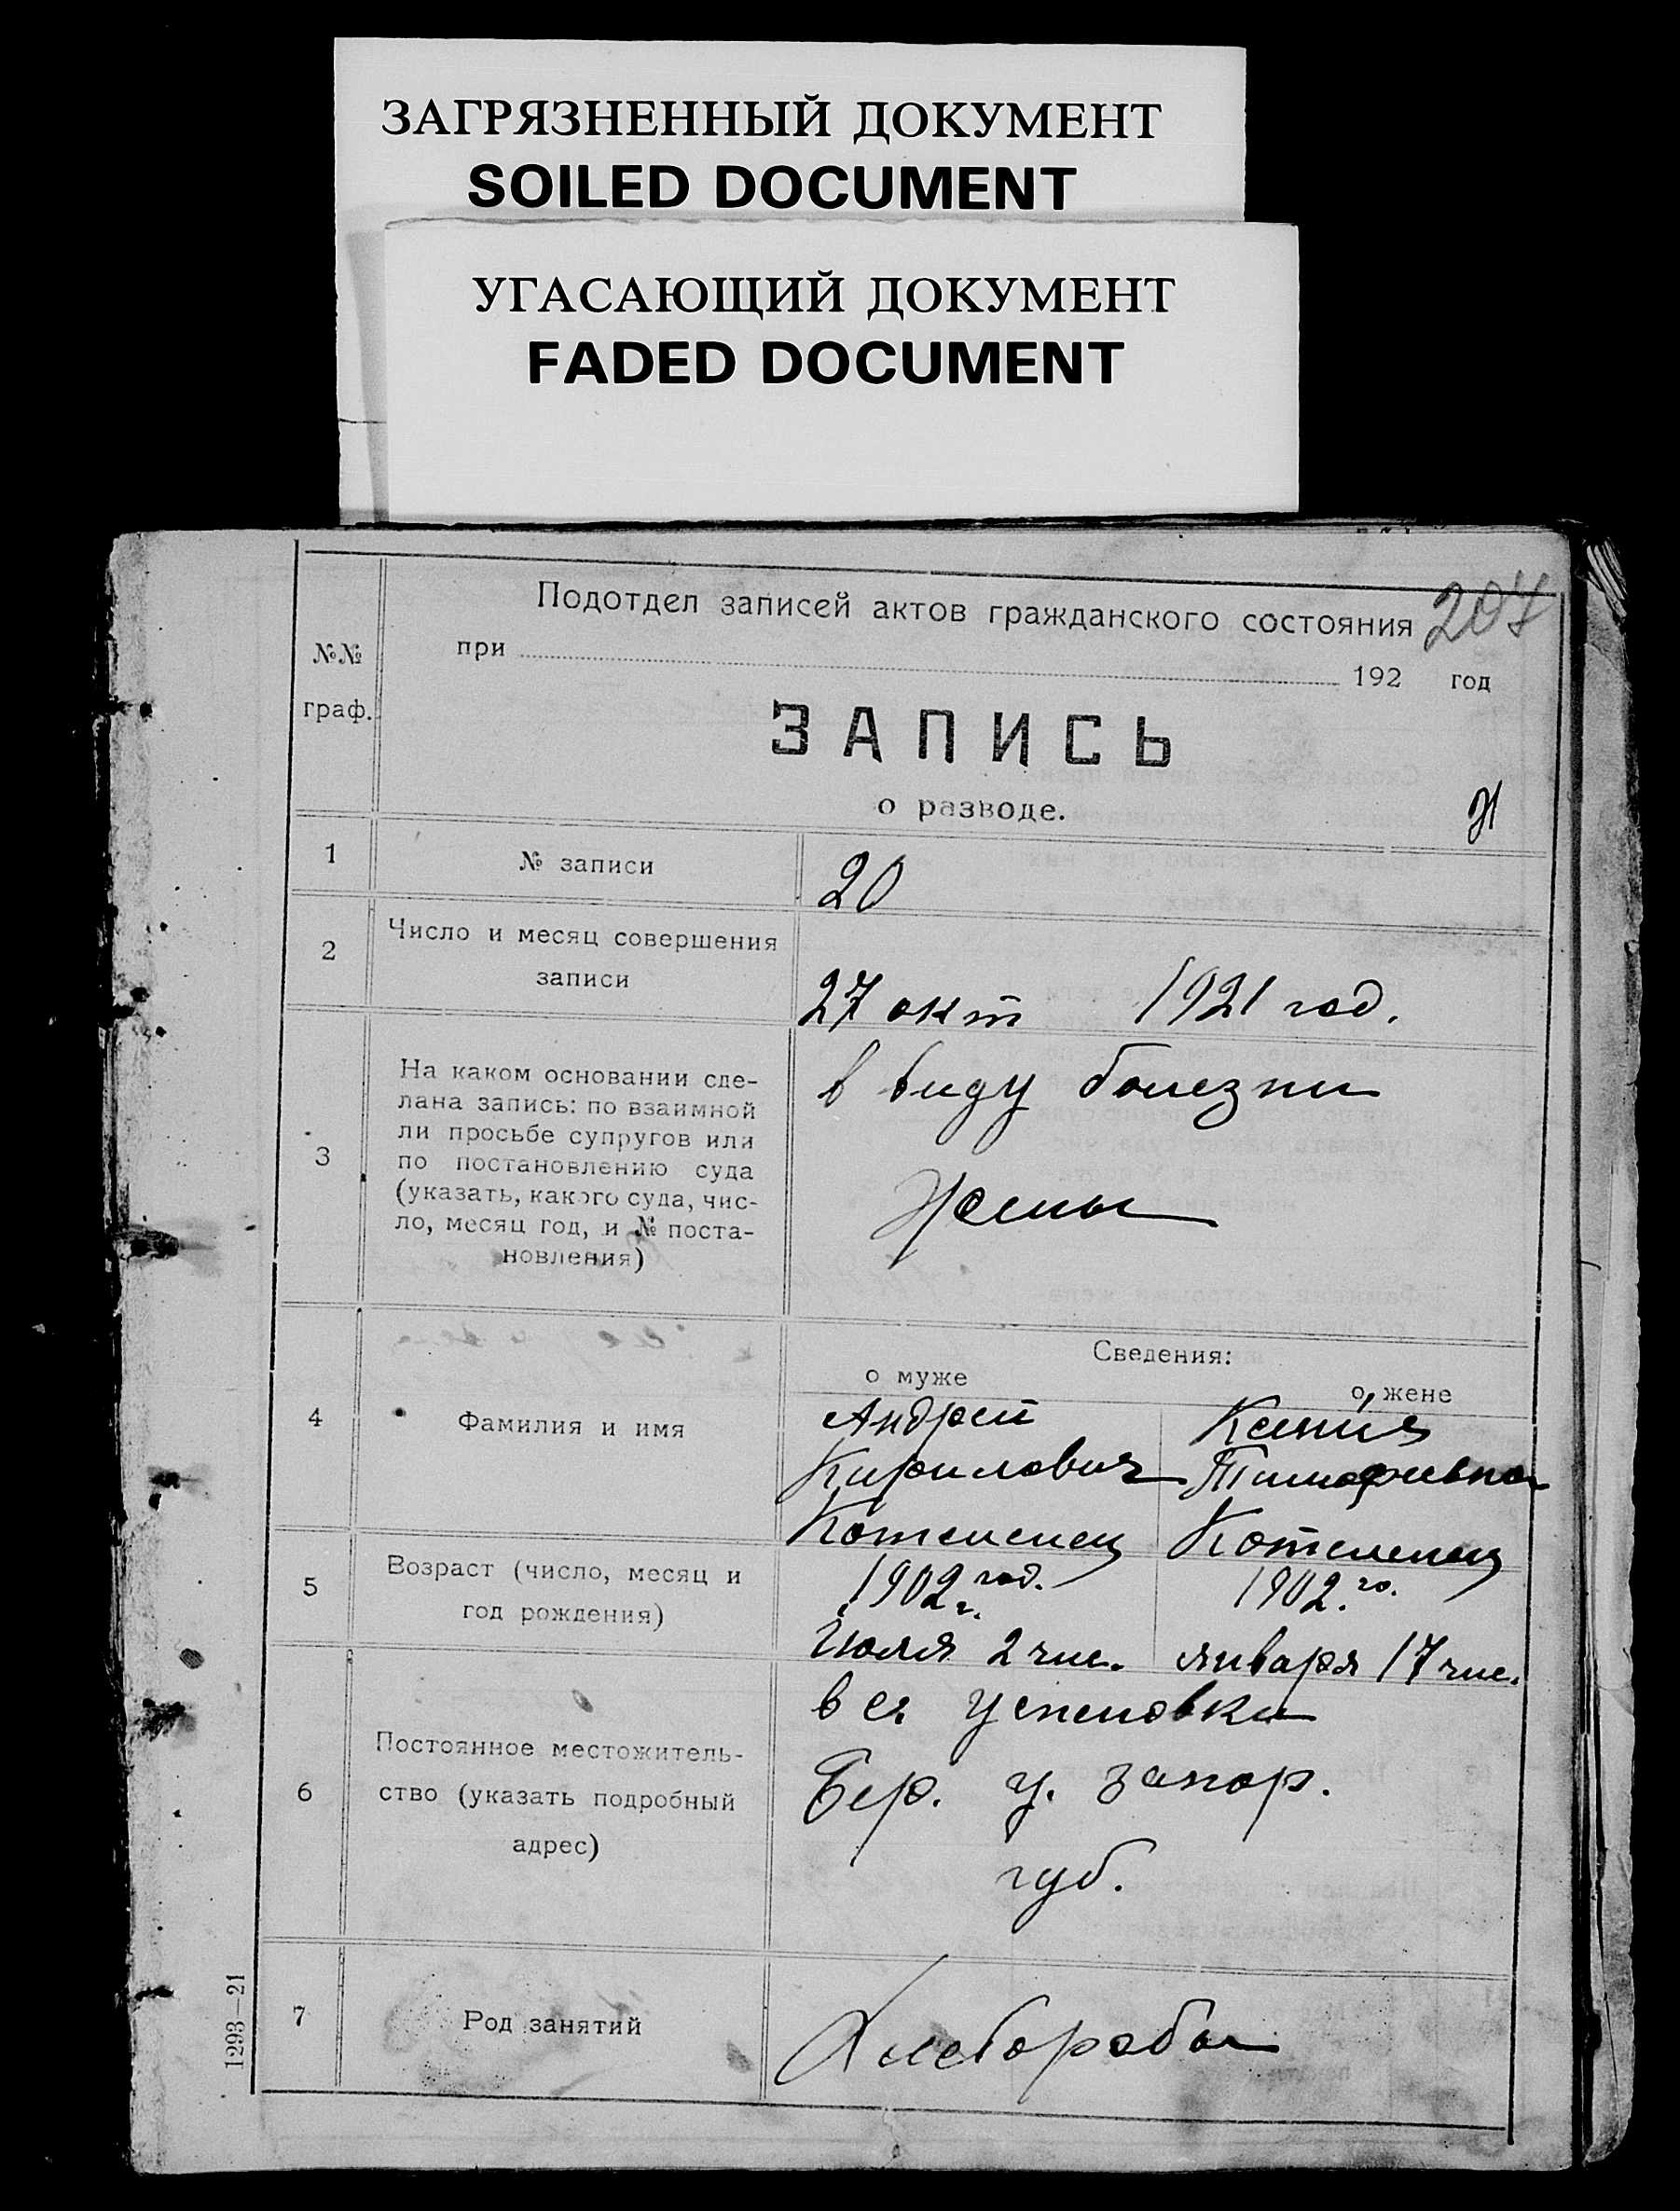 ЗАГРЯЗНЕННЫЙ ДОКУМЕНТ
SOILED DOCUMENT
УГАСАЮЩИЙ ДОКУМЕНТ
FADED DOCUMENT
207
№№
граф.
Подотдел записей актов гражданского состояния
при 192 год
ЗАПИСЬ
о разводе.
1
№ записи
20
2
Число и месяц совершения
записи
27 окт 1921 год.
3
На каком основании сде-
лана запись: по взаимной
ли просьбе супругов или
по постановлению суда
(указать, какого суда, чис-
ло, месяц год, и № поста-
новления)
в виду болезни
Жены
Сведения:
о муже
о жене
4
Фамилия и имя
Андрей
Кирилович
Котеленец
Ксенія
Тимофиевна
Котеленец
5
Возраст (число, месяц и
год рождения)
1902 год.
г.
Июля 2 чис.
1902. го.
января 17 чис.
6
Постоянное местожитель-
ство (указать подробный
адрес)
в с. Успеновка
Бер. у. Запор.
губ.
7
Род занятий
Хлеборобы
1293—21